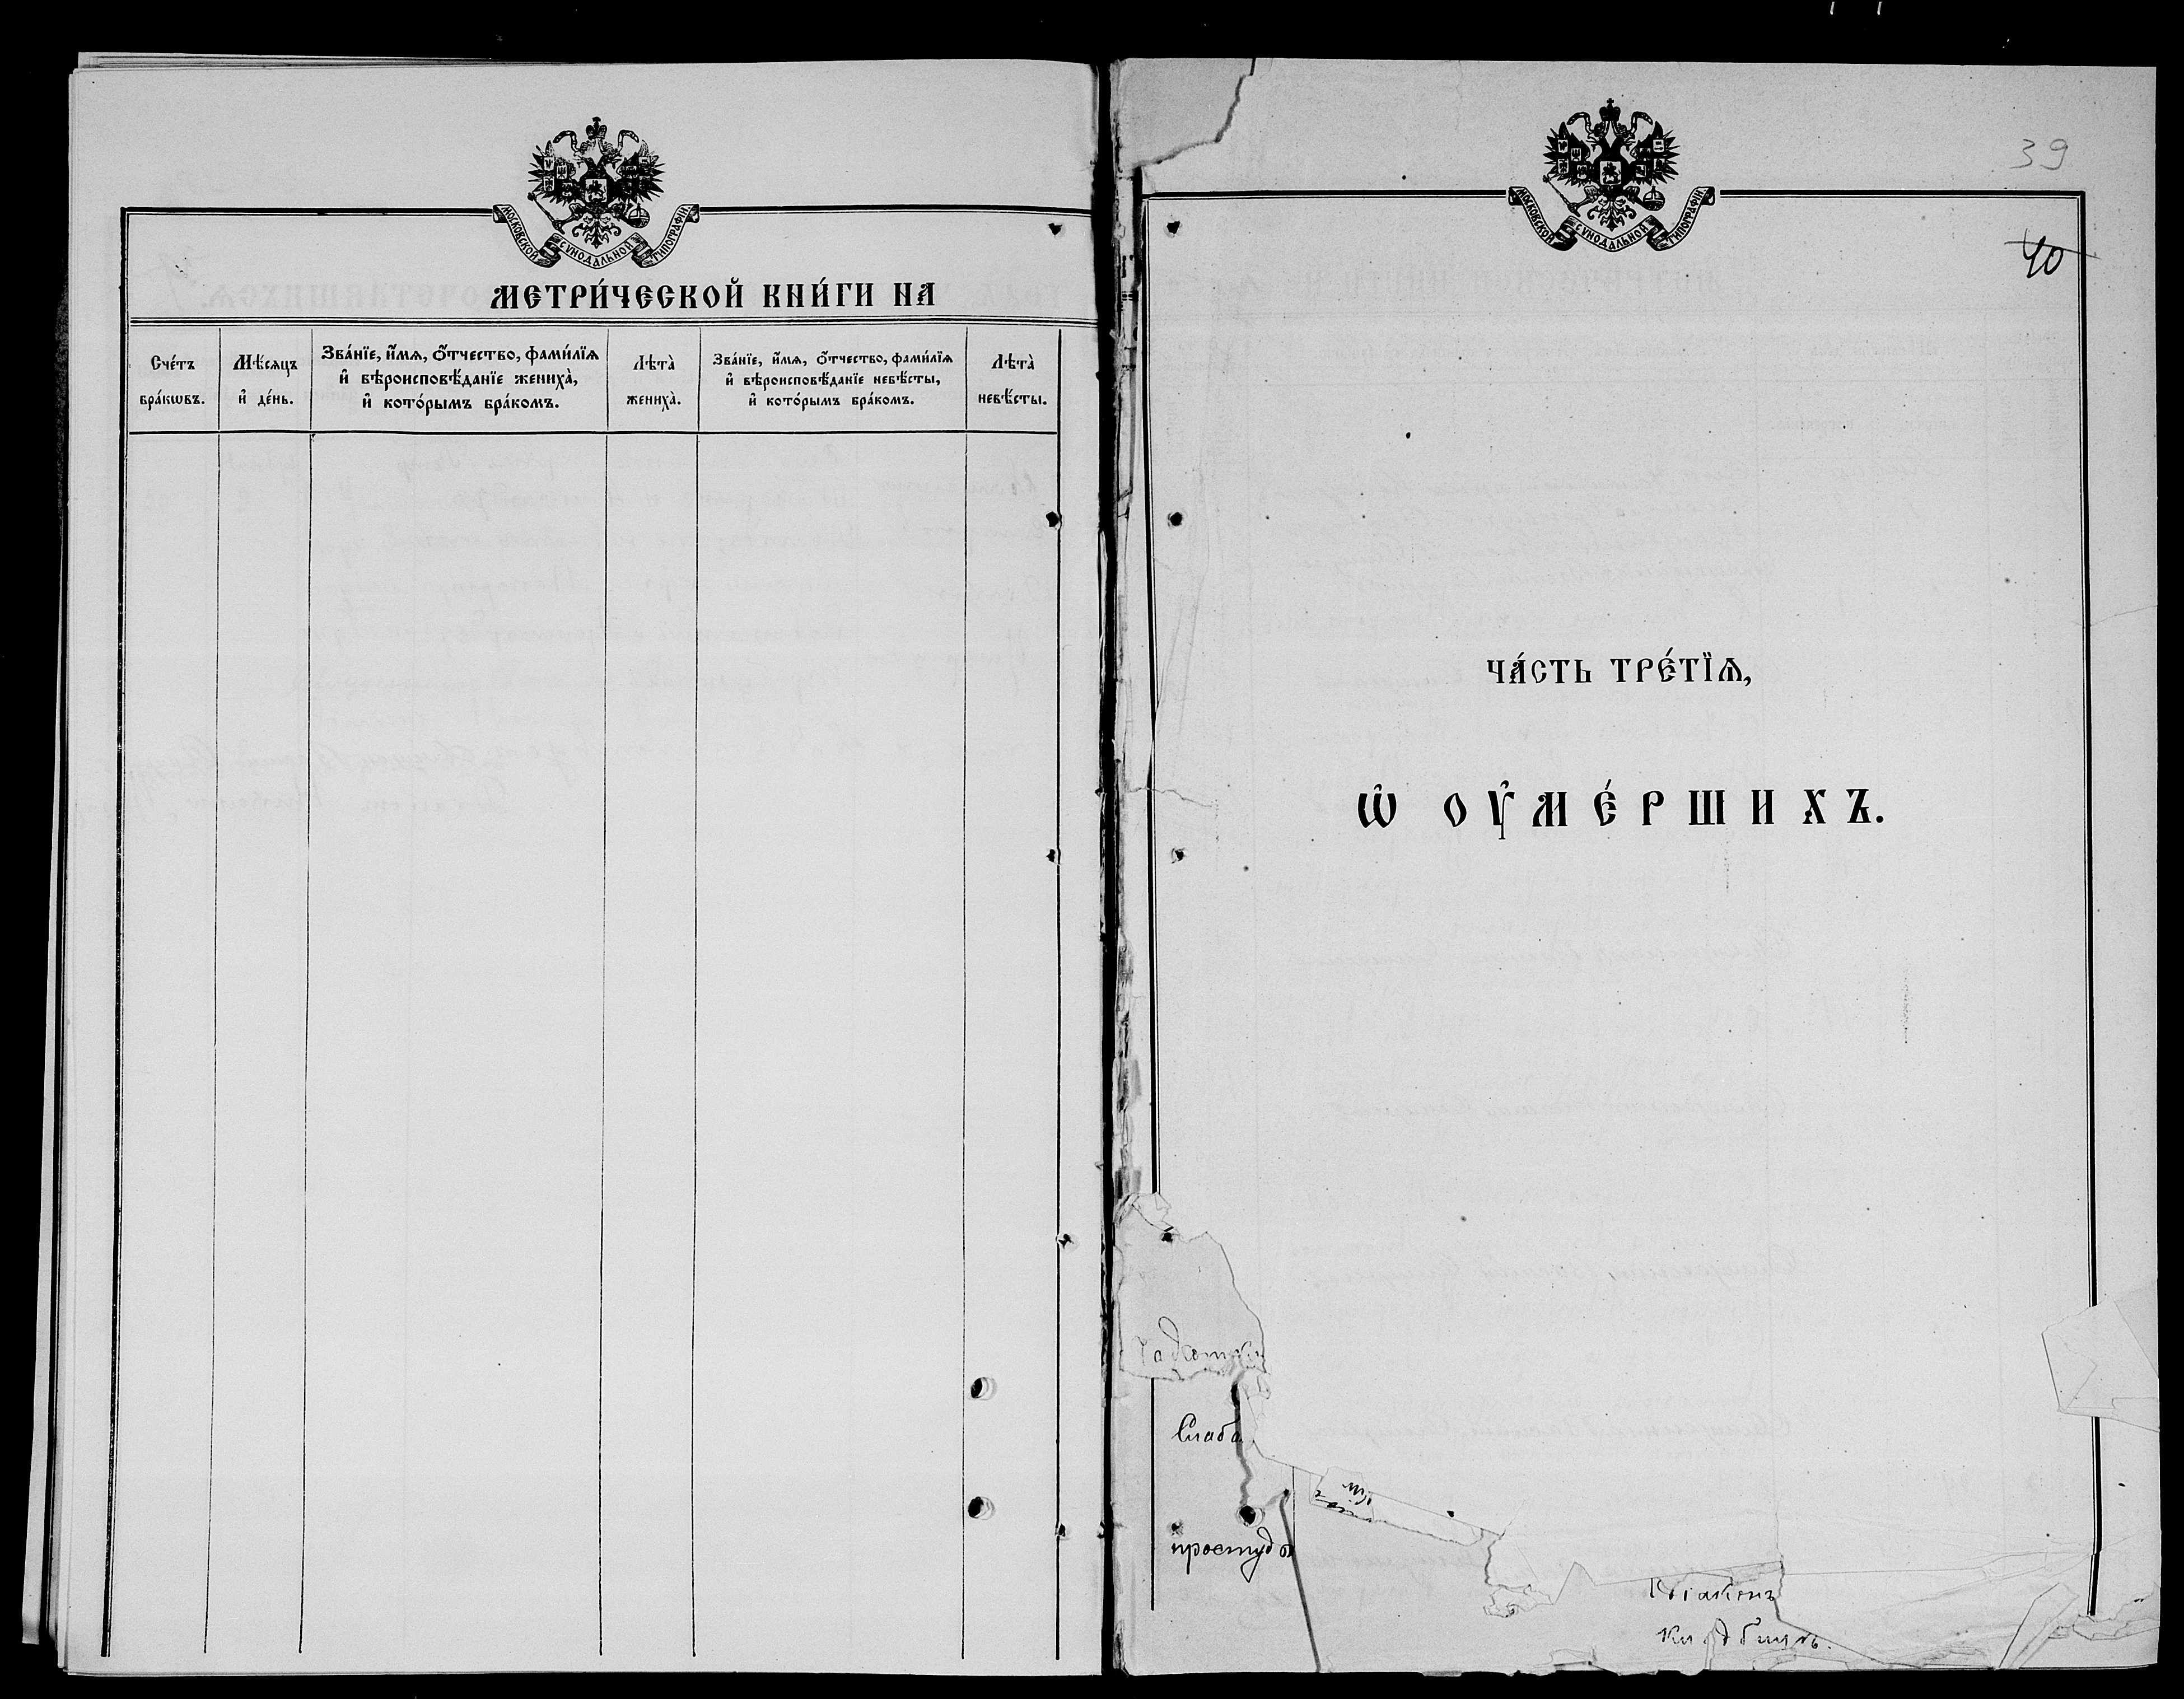 МОСКОВСКОЙ СѴНОДАЛЬНОЙ ТИПОГРАФІИ.
МЕТРИ́ЧЕСКОЙ КНИ́ГИ НА
Сче́тъ бра́кѡвъ.
Мѣ́сяцъ и҆ де́нь.
Зва́нїе, и҆́мѧ, ѻ҆́тчество, фами́лїѧ
и҆ вѣроисповѣ́данїе жениха̀,
и҆ кото́рымъ бра́комъ.
Лѣта̀ жениха̀.
Зва́нїе, и҆́мѧ, ѻ҆́тчество, фами́лїѧ
и҆ вѣроисповѣ́данїе невѣ́сты,
и҆ кото́рымъ бра́комъ.
Лѣта̀ невѣ́сты.
МОСКОВСКОЙ СѴНОДАЛЬНОЙ ТИПОГРАФІИ.
39
40
ЧА́СТЬ ТРЕ́ТЇѦ,
Ѡ҆ ОУ҆МЕ́РШИХЪ.
Слаба
простуды